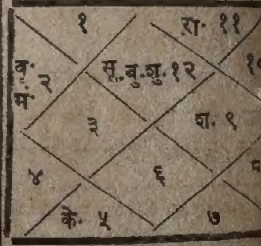 १ रा. ११
बृ. २ सू. बु. शु. १२ १०
मं.
३ श. ९
४ ६
के. ५ ७